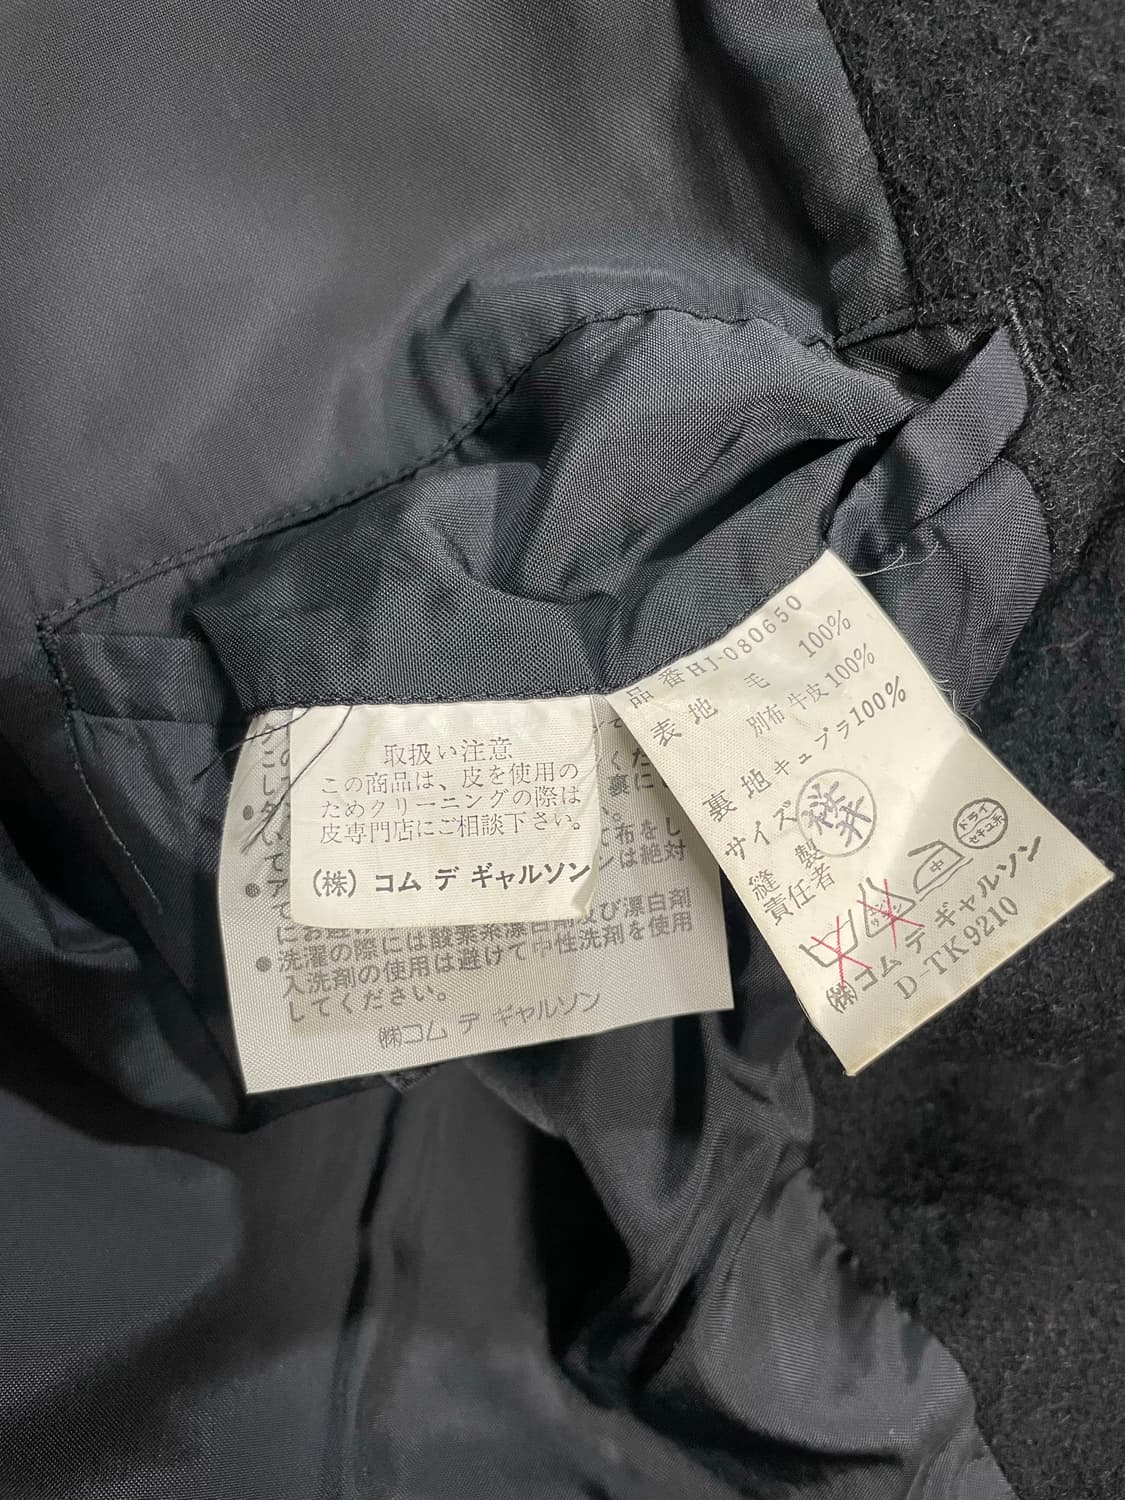 取扱い注意
この商品は、皮を使用の
ためクリーニングの際は
皮専門店にご相談下さい。
(株) コム デ ギャルソン
布をし
は絶対
及び漂白剤
洗濯の際には酸素系漂白
入洗剤の使用は避けて中性洗剤を使用
してください。
㈱コム デ ギャルソン
品番HJ-080650
表地 毛 100%
別布 牛皮100%
裏地キュプラ100%
サイズ
縫製
責任者
桜井
中
ドライ
セキユ系
㈱コム デ ギャルソン
D-TK9210